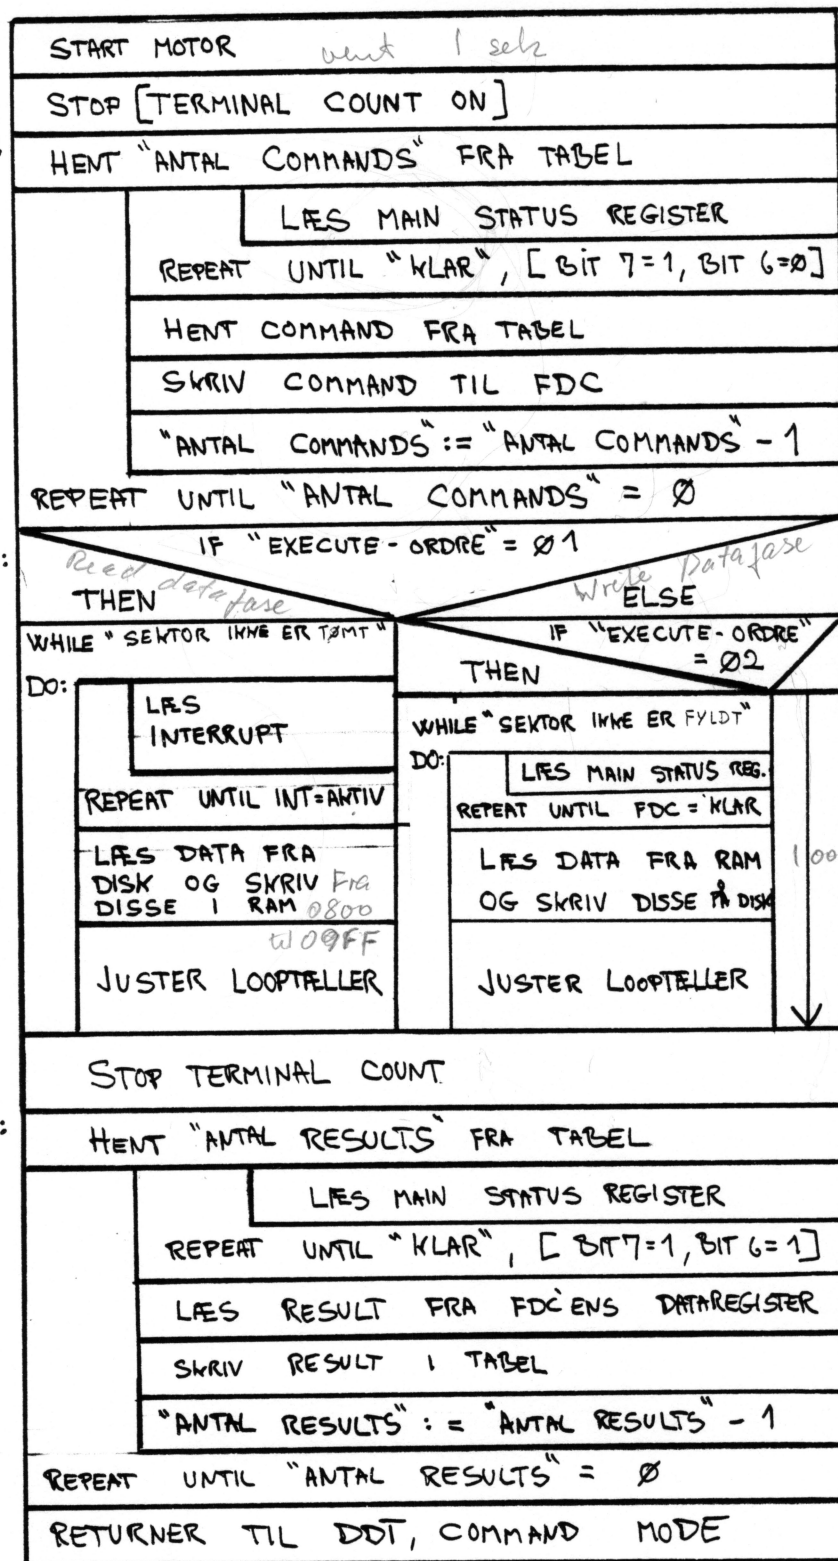 START MOTOR vent 1 sek
STOP [TERMINAL COUNT ON]
HENT "ANTAL COMMANDS" FRA TABEL
LÆS MAIN STATUS REGISTER
REPEAT UNTIL "KLAR", [BIT 7=1, BIT 6=Ø]
HENT COMMAND FRA TABEL
SKRIV COMMAND TIL FDC
"ANTAL COMMANDS":= "ANTAL COMMANDS" - 1
REPEAT UNTIL "ANTAL COMMANDS" = Ø
IF "EXECUTE-ORDRE" = Ø1
Read datafase
Write Datafase
THEN
ELSE
WHILE "SEKTOR IKKE ER TØMT"
DO:
LÆS
INTERRUPT
REPEAT UNTIL INT=AKTIV
LÆS DATA FRA
DISK OG SKRIV Fra
DISSE I RAM 0800
til 09FF
JUSTER LOOPTÆLLER
IF "EXECUTE-ORDRE"
= Ø2
THEN
WHILE "SEKTOR IKKE ER FYLDT"
DO:
LÆS MAIN STATUS REG.
REPEAT UNTIL FDC = KLAR
LÆS DATA FRA RAM
OG SKRIV DISSE PÅ DISK
JUSTER LOOPTÆLLER
STOP TERMINAL COUNT
HENT "ANTAL RESULTS" FRA TABEL
LÆS MAIN STATUS REGISTER
REPEAT UNTIL "KLAR", [BIT 7=1, BIT 6=1]
LÆS RESULT FRA FDC'ENS DATAREGISTER
SKRIV RESULT I TABEL
"ANTAL RESULTS" := "ANTAL RESULTS" - 1
REPEAT UNTIL "ANTAL RESULTS" = Ø
RETURNER TIL DDT, COMMAND MODE